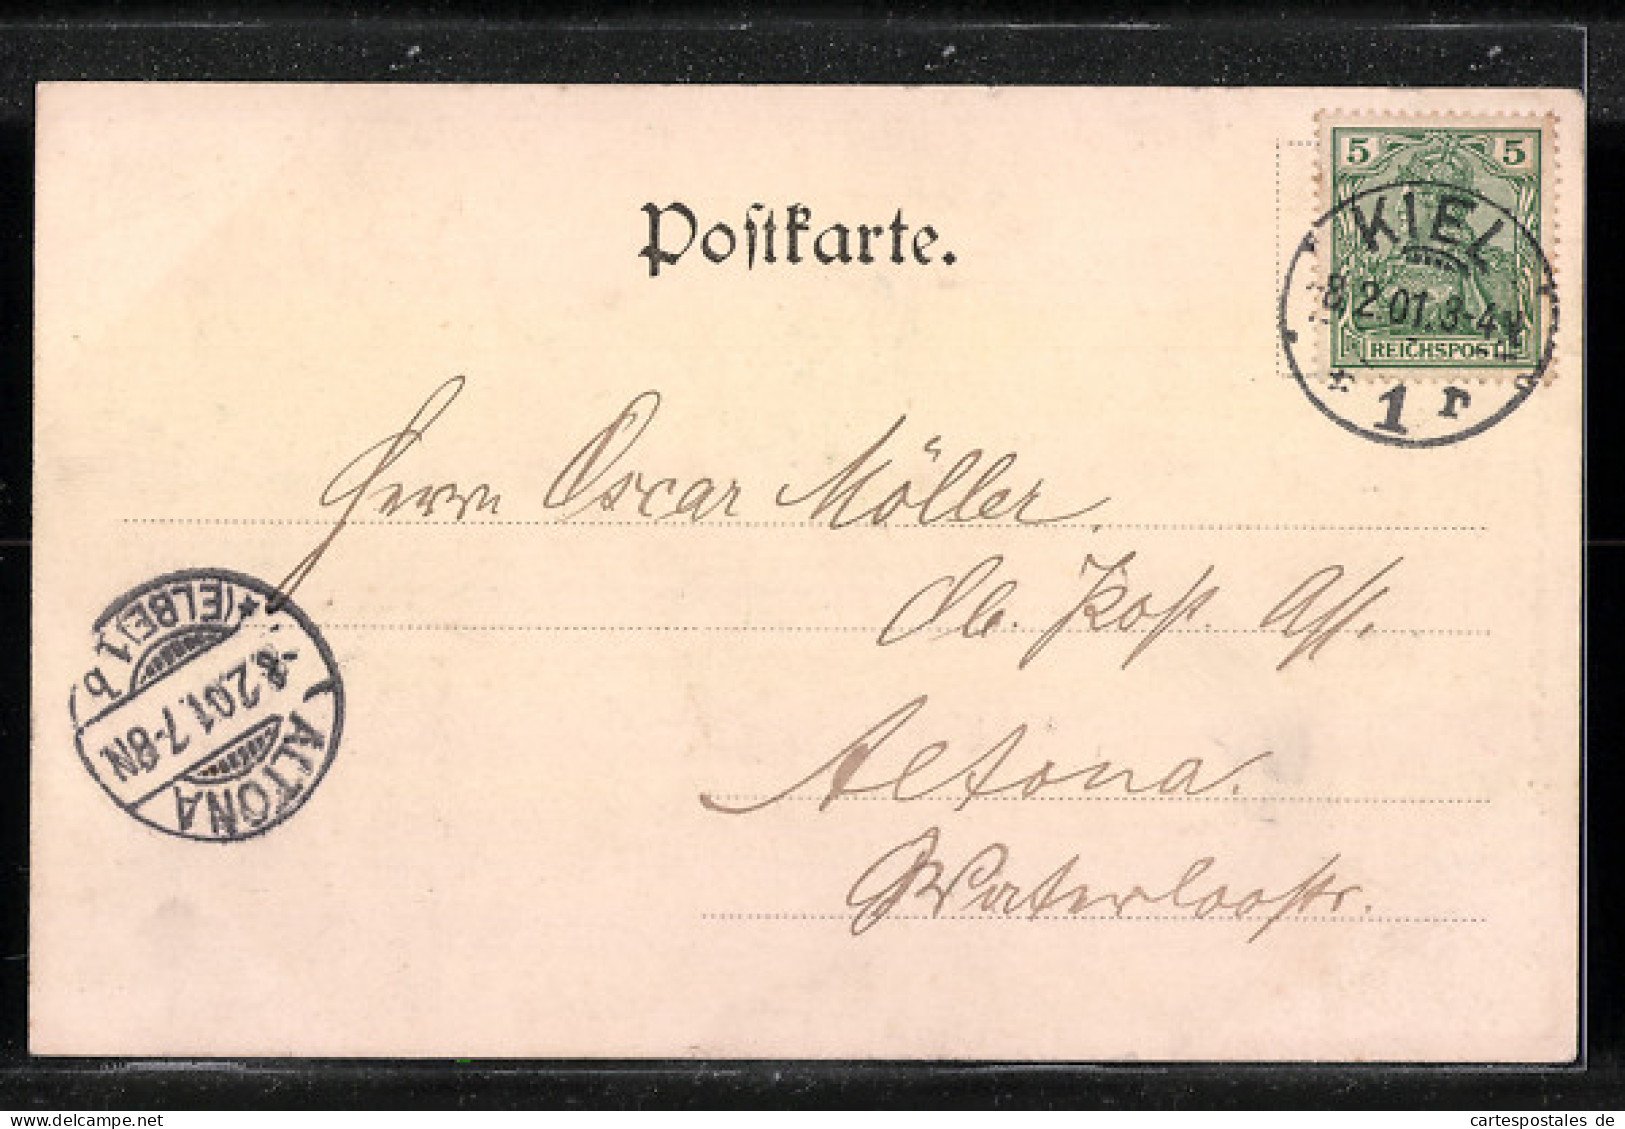 Postkarte.
5 5
REICHSPOST
KIEL
8.2.01.3-4N
1 r
Herrn Oscar Möller.
Ob. Post. Ass.
Altona.
Waterloostr.
ALTONA
8.2.01.7-8N
*(ELBE)1 b
cartespostales de